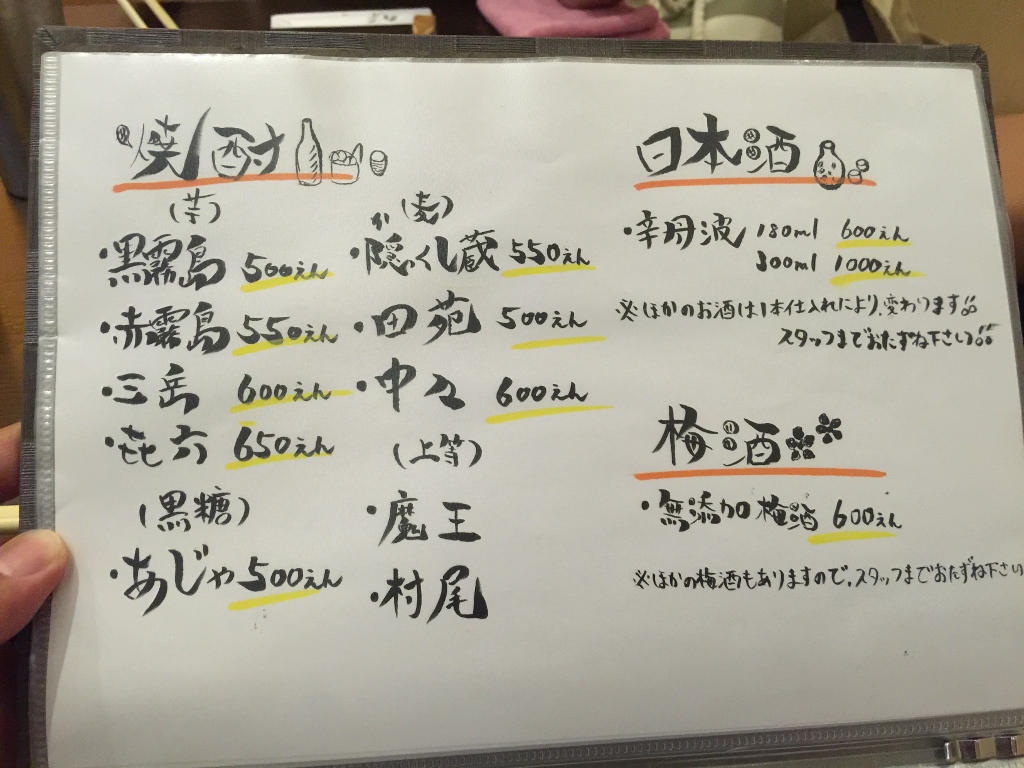 焼酎
(芋)
・黒霧島 500えん
・赤霧島 550えん
・三岳 600えん
・㐂六 650えん
(黒糖)
・あじゃ 500えん
(麦)
か
・隠くし蔵 550えん
・田苑 500えん
・中々 600えん
(上等)
・魔王
・村尾
日本酒
・辛丹波 180ml 600えん
300ml 1000えん
※ほかのお酒は1本仕入れにより、変わります
スタッフまでおたずね下さい
梅酒
・無添加梅酒 600えん
※ほかの梅酒もありますので、スタッフまでおたずね下さい